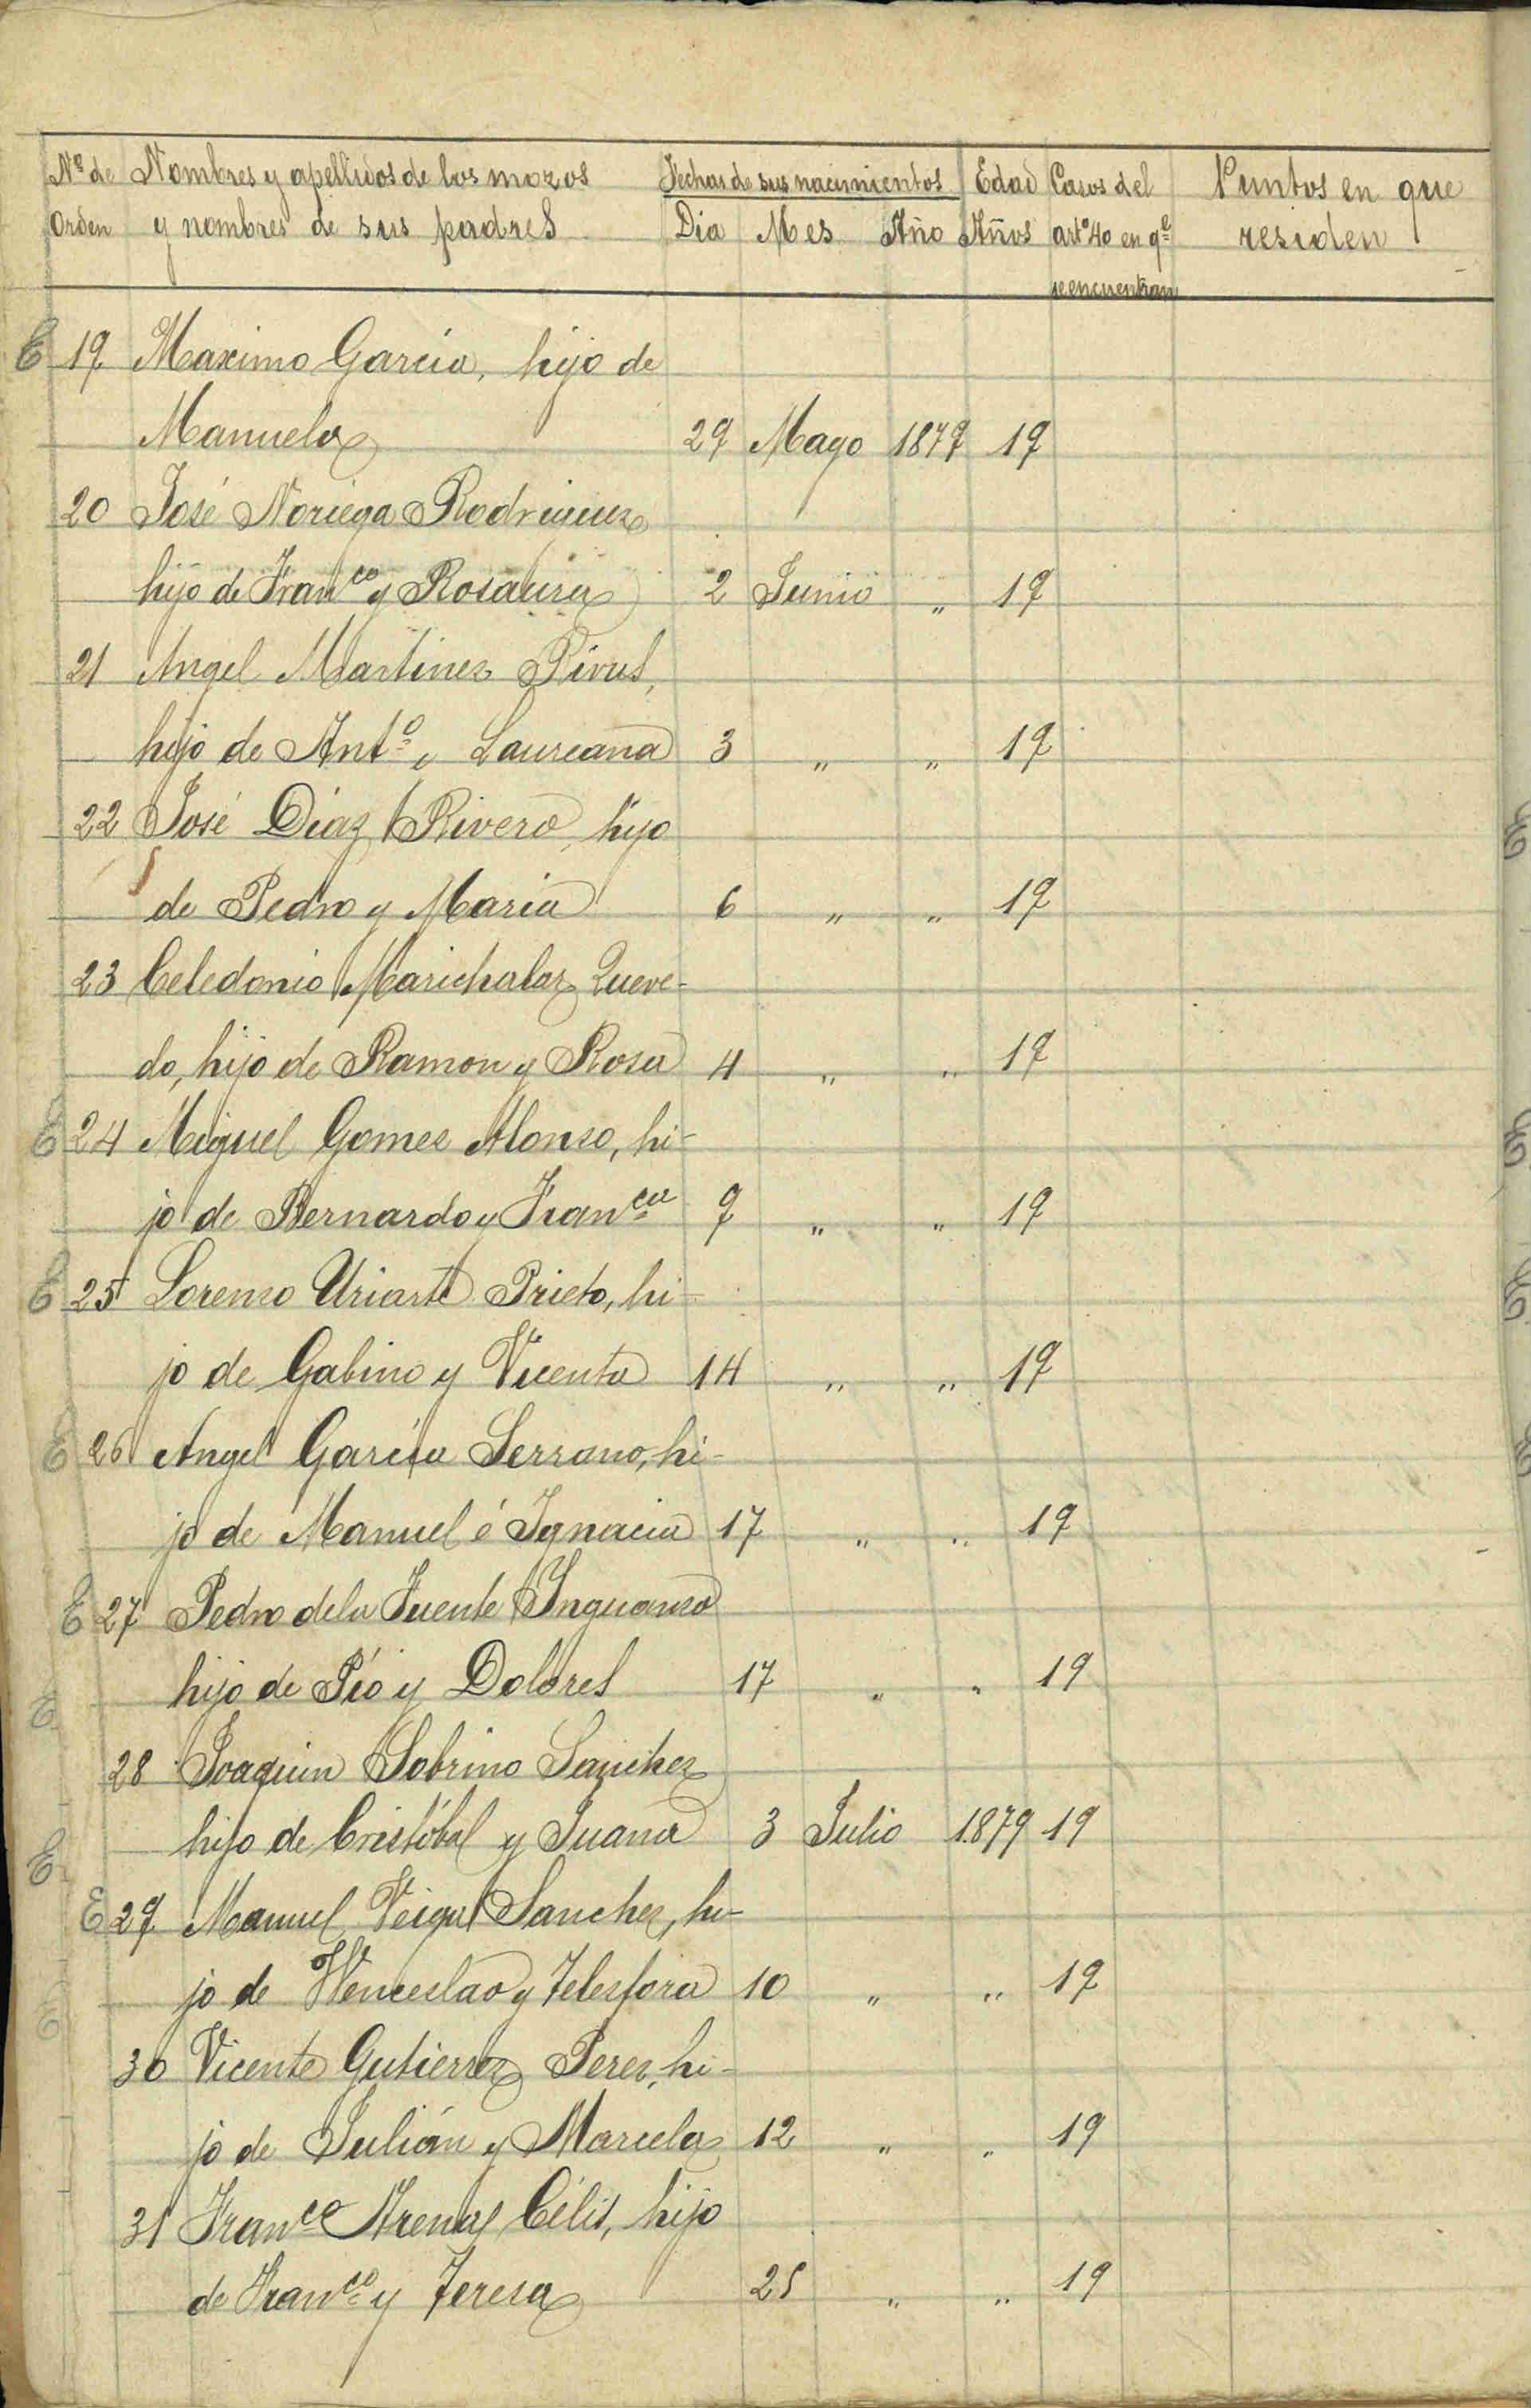 Nº de Nombres y apellidos de los mozos Fechas de sus nacimientos Edad Casos del Puntos en que
Orden y nombres de sus padres Dia Mes Año Años artº 40 en qe residen
se encuentran
E 19 Maximo Garcia, hijo de
Manuela 29 Mayo 1879 19
20 José Noriega Rodriguez
hijo de Franco y Rosaura 2 Junio " 19
21 Angel Martinez
hijo de Anto y Laureana 3 " " 19
22 José Díaz Rivero, hijo
de Pedro y Maria 6 " " 19
23 Celedonio Marichalar Queve-
do, hijo de Ramon y Rosa 4 " " 19
E 24 Miguel Gomez Alonso, hi-
jo de Bernardo y Franca 9 " " 19
E 25 Lorenzo Uriarte Prieto, hi-
jo de Gabino y Vicenta 14 " " 19
E 26 Angel García Serrano, hi-
jo de Manuel é Ignacia 17 " " 19
E 27 Pedro de la Fuente Inguanzo
hijo de Pío y Dolores 17 " " 19
E
28 Joaquin Sobrino Sanchez
hijo de Cristóbal y Juana 3 Julio 1879 19
E
E 29 Manuel Veigas Sanchez, hi-
jo de Wenceslao y Telesfora 10 " " 19
E
30 Vicente Gutierrez Perez, hi-
jo de Julián y Marcela 12 " " 19
31 Franco Arenas Célis, hijo
de Franco y Teresa 25 " " 19